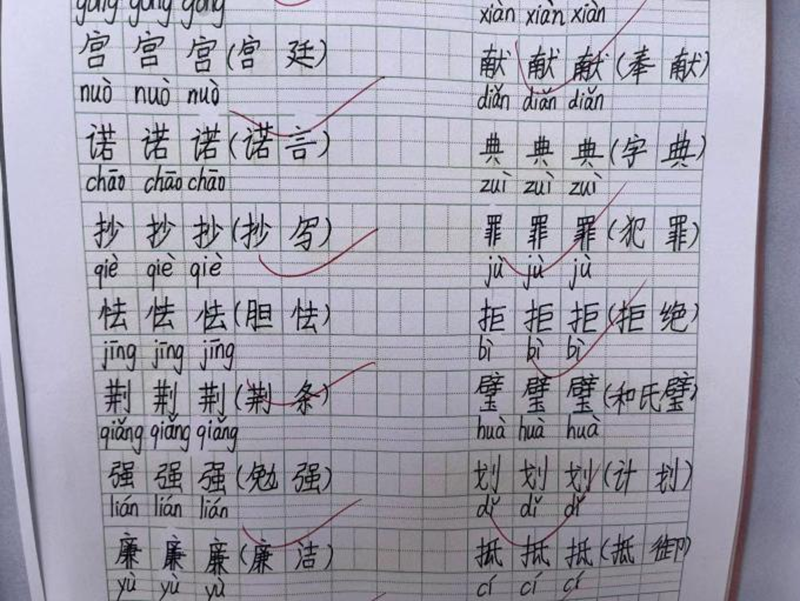 gōng gōng gōng
宫 宫 宫(宫 廷)
nuò nuò nuò
诺 诺 诺(诺 言)
chāo chāo chāo
抄 抄 抄(抄 写)
qiè qiè qiè
怯 怯 怯(胆 怯)
jīng jīng jīng
荆 荆 荆(荆 条)
qiǎng qiǎng qiǎng
强 强 强(勉 强)
lián lián lián
廉 廉 廉(廉 洁)
yù yù yù
xiàn xiàn xiàn
献 献 献(奉 献)
diǎn diǎn diǎn
典 典 典(字 典)
zuì zuì zuì
罪 罪 罪(犯 罪)
jù jù jù
拒 拒 拒(拒 绝)
bì bì bì
璧 璧 璧(和氏璧)
huà huà huà
划 划 划(计 划)
dǐ dǐ dǐ
抵 抵 抵(抵 御)
cí cí cí